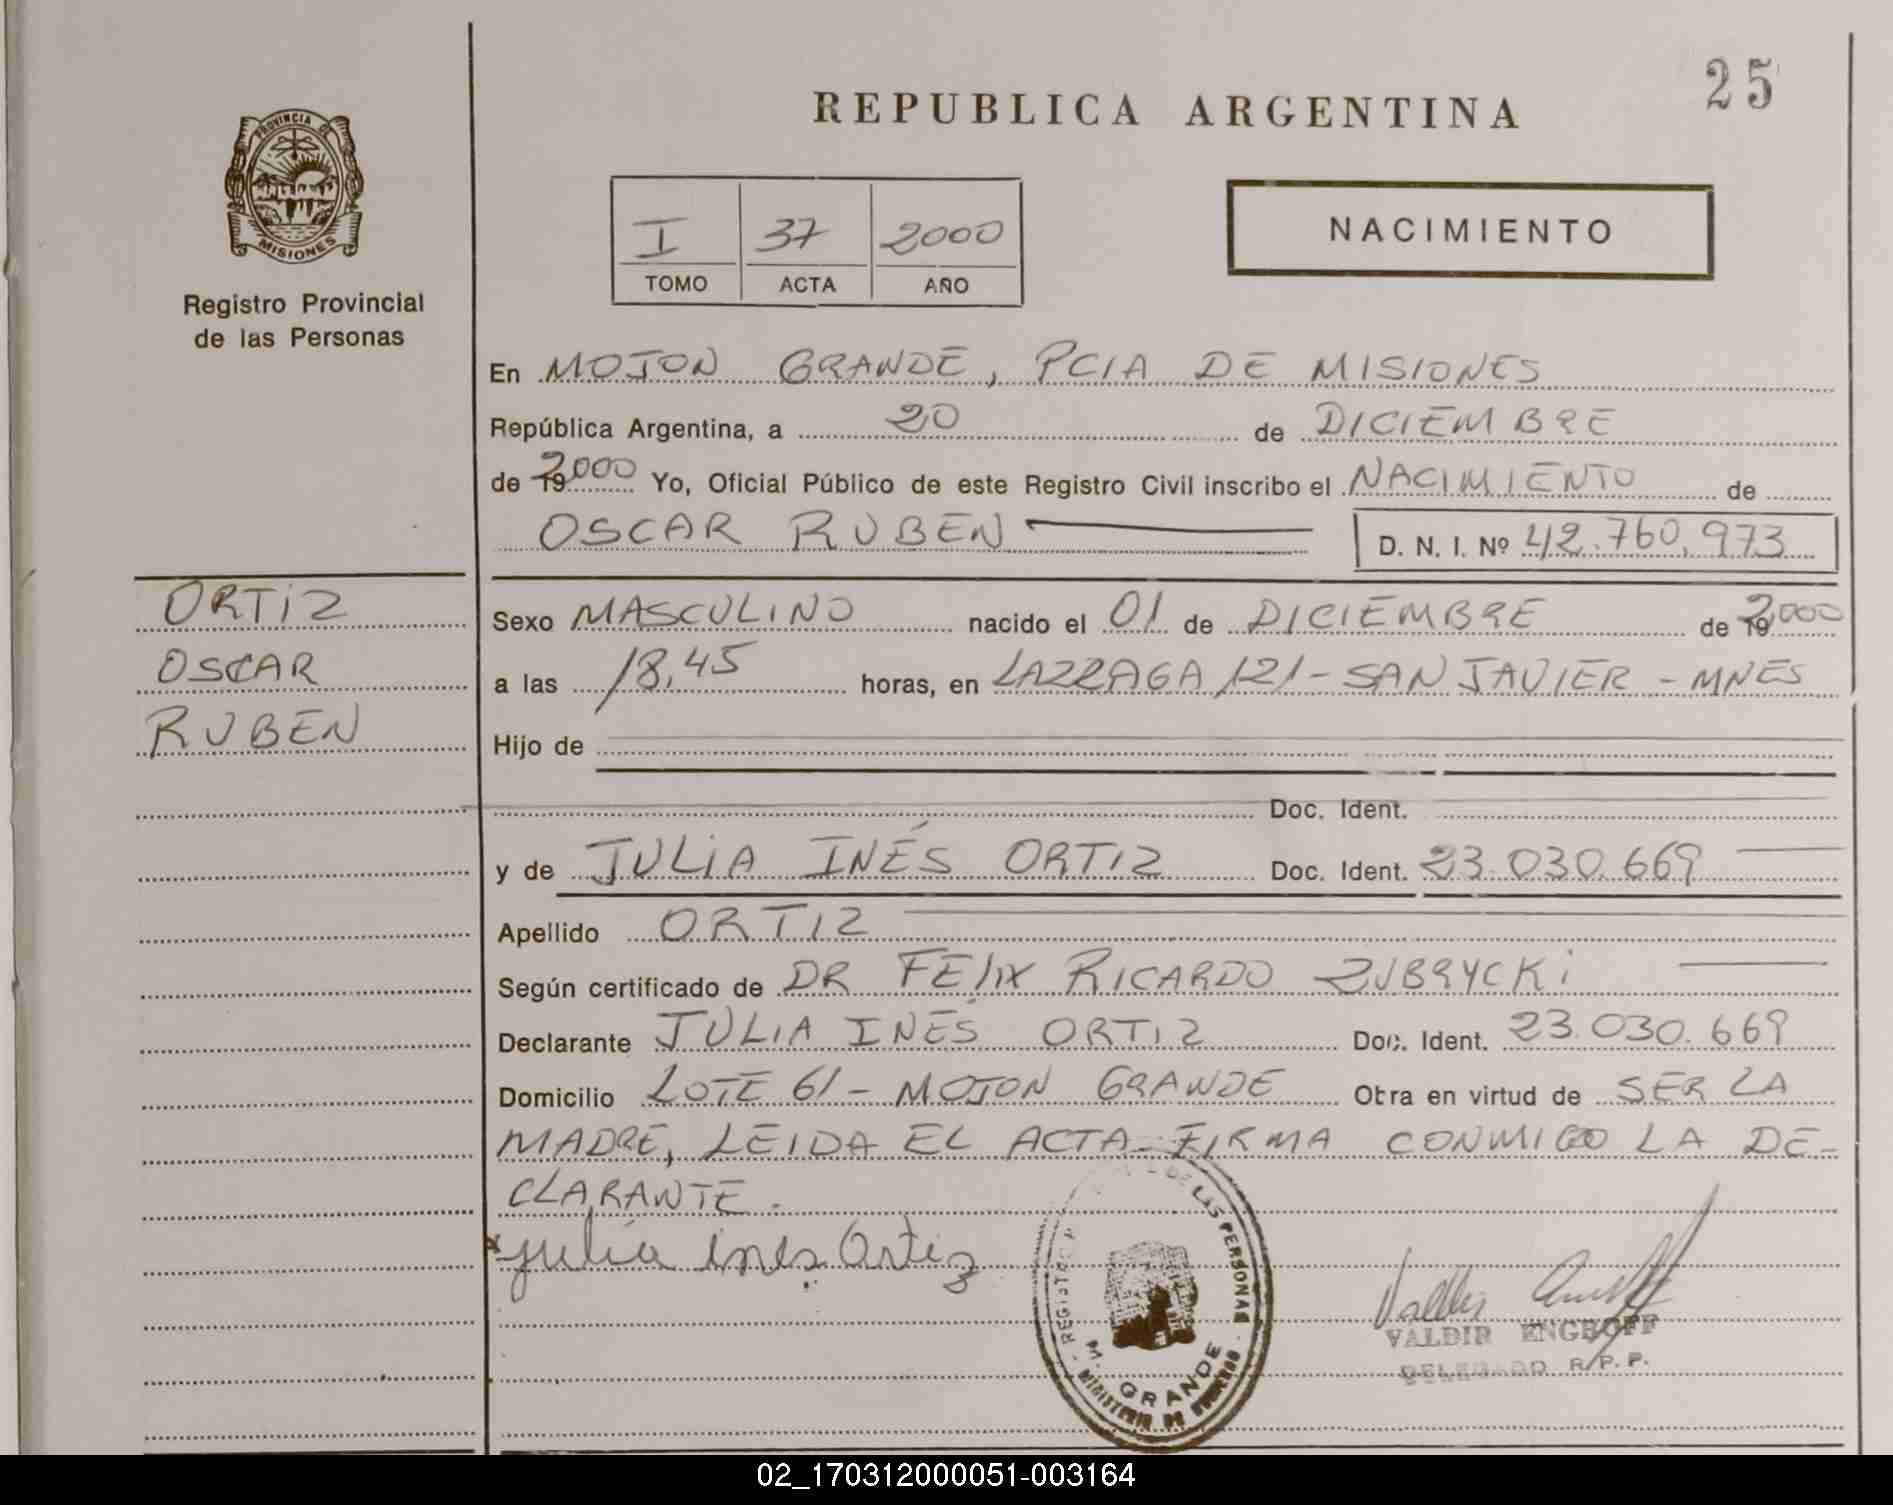 25
REPUBLICA ARGENTINA
PROVINCIA DE
MISIONES
Registro Provincial
de las Personas
I 37 2000
TOMO ACTA AÑO
NACIMIENTO
En MOJON GRANDE, PCIA DE MISIONES
República Argentina, a 20 de DICIEMBRE
de 19 2000 Yo, Oficial Público de este Registro Civil inscribo el NACIMIENTO de
OSCAR RUBEN D. N. I. Nº 42.760.973
ORTIZ
OSCAR
RUBEN
Sexo MASCULINO nacido el 01 de DICIEMBRE de 19 2000
a las 18,45 horas, en LAZRAGA 121 - SAN JAVIER - MNES
Hijo de
Doc. Ident.
y de JULIA INÉS ORTIZ Doc. Ident. 23.030.669
Apellido ORTIZ
Según certificado de DR FELIX RICARDO ZUBRYCKI
Declarante JULIA INÉS ORTIZ Doc. Ident. 23.030.669
Domicilio LOTE 61 - MOJON GRANDE Obra en virtud de SER LA
MADRE, LEIDA EL ACTA FIRMA CONMIGO LA DE-
CLARANTE.
Julia ines Ortiz
DE LAS PERSONAS
M. GRANDE
MINISTERIO DE GOBIERNO
VALDIR ENGROFF
DELEGADO R.P.P.
02_170312000051-003164